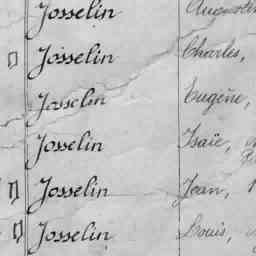 Josselin Augustin
Josselin Charles,
Josselin Eugène,
Josselin Isaïe,
Josselin Jean,
Josselin Louis,